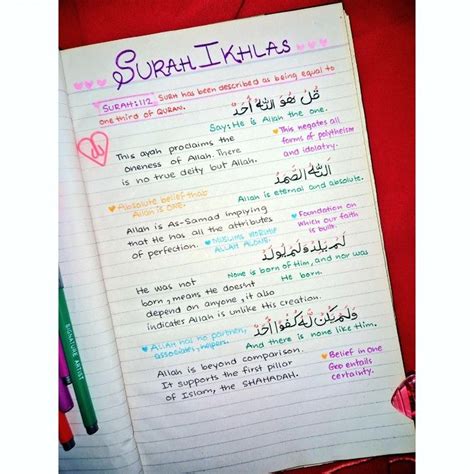 SURAH IKHLAS
SURAH:112. SURH has been described as being equal to
one third of QURAN.
قُلْ هُوَ اللّٰهُ أَحَدٌ
Say: He is Allah the one.
This ayah proclaims the
oneness of Allah. There
is no true deity but Allah.
This negates all
forms of polytheism
and idolatry.
اَللّٰهُ الصَّمَدُ
Allah is eternal and absolute.
Absolute belief that
Allah is ONE.
Allah is As-Samad implying
that He has all the attributes
of perfection.
MUSLIMS WORSHIP
ALLAH ALONE.
Foundation on
which our faith
is built.
لَمْ يَلِدْ وَلَمْ يُولَدْ
None is born of Him, and nor was
He born.
He was not
born, means He doesnt
depend on anyone, it also
indicates Allah is unlike His creation.
Allah has no partner,
associates, helpers.
وَلَمْ يَكُنْ لَّهُ كُفُوًا أَحَدٌ
And there is none like Him.
Allah is beyond comparison.
It supports the first pillar
of Islam, the SHAHADAH.
Belief in one
God entails
certainty.
SIGNATURE ARTIST